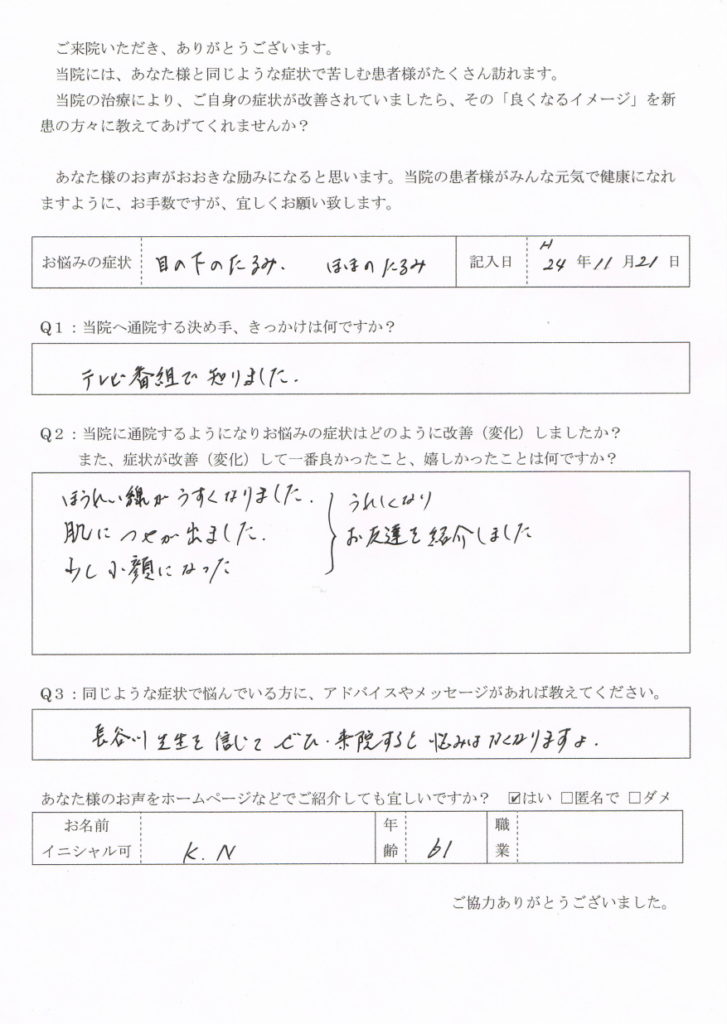 ご来院いただき、ありがとうございます。
当院には、あなた様と同じような症状で苦しむ患者様がたくさん訪れます。
当院の治療により、ご自身の症状が改善されていましたら、その「良くなるイメージ」を新
患の方々に教えてあげてくれませんか？
あなた様のお声がおおきな励みになると思います。当院の患者様がみんな元気で健康になれ
ますように、お手数ですが、宜しくお願い致します。
お悩みの症状 目の下のたるみ. ほほのたるみ 記入日 H24年11月21日
Q1：当院へ通院する決め手、きっかけは何ですか？
テレビ番組で知りました.
Q2：当院に通院するようになりお悩みの症状はどのように改善（変化）しましたか？
また、症状が改善（変化）して一番良かったこと、嬉しかったことは何ですか？
ほうれい線がうすくなりました. うれしくなり
肌につやが出ました. お友達を紹介しました
少し小顔になった
Q3：同じような症状で悩んでいる方に、アドバイスやメッセージがあれば教えてください。
長谷川先生を信じてぜひ.来院すると悩みはなくなりますよ.
あなた様のお声をホームページなどでご紹介しても宜しいですか？ ☑はい □匿名で □ダメ
お名前 年 職
イニシャル可 K.N 齢 61 業
ご協力ありがとうございました。